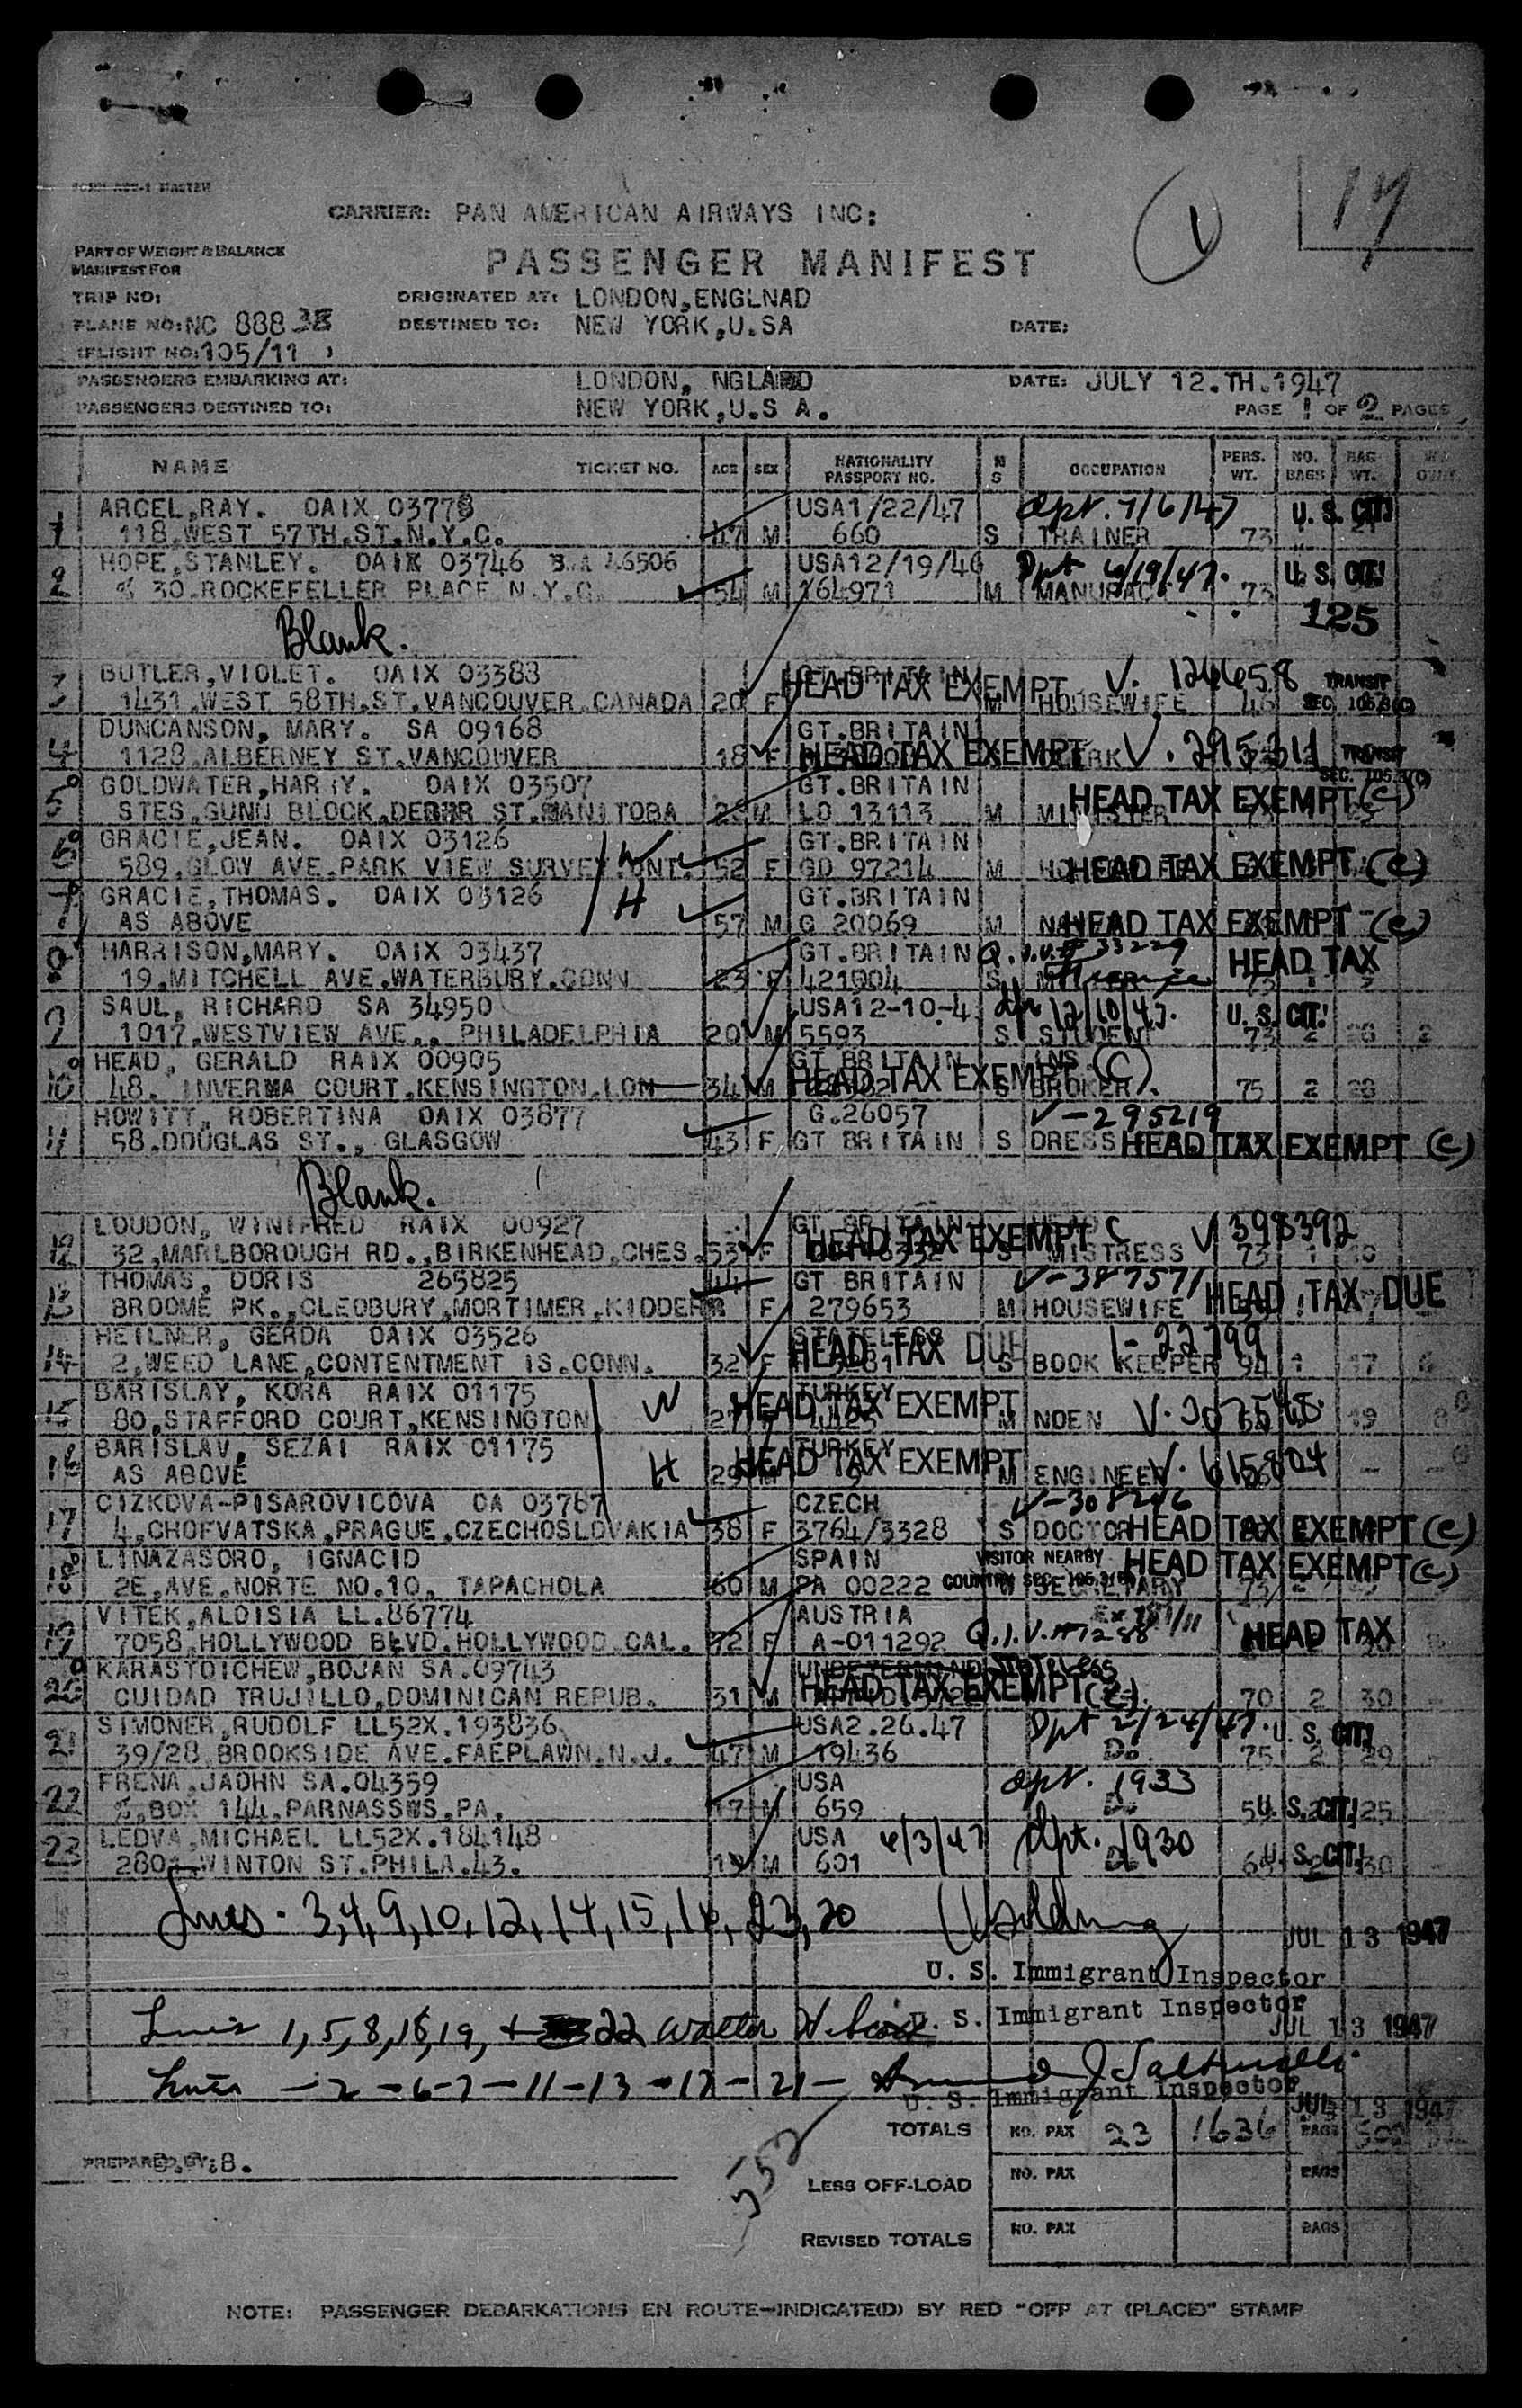 FORM ADD-1 MASTER
1 17
CARRIER: PAN AMERICAN AIRWAYS INC:
PART OF WEIGHT & BALANCE
MANIFEST FOR
PASSENGER MANIFEST
TRIP NO: ORIGINATED AT: LONDON,ENGLNAD
PLANE NO: NC 88838 DESTINED TO: NEW YORK,U.SA DATE:
(FLIGHT NO: 105/11 )
PASSENGERS EMBARKING AT: LONDON, NGLAND DATE: JULY 12.TH.1947
PASSENGERS DESTINED TO: NEW YORK,U.S A. PAGE 1 OF 2 PAGES
NAME TICKET NO. AGE SEX NATIONALITY PASSPORT NO. M S OCCUPATION PERS. WT. NO. BAGS BAG WT.
ARCEL,RAY. OAIX 03778 USA1/22/47 Dpt. 7/6/47 U. S. CIT!
1 118.WEST 57TH.ST.N.Y.C. 47 M 660 S TRAINER 73
HOPE,STANLEY. OAIX 03746 46506 USA12/19/46 Dpt 6/19/47. U. S. CIT!
2 % 30.ROCKEFELLER PLACE N.Y.C. 54 M 164971 M 73
125
Blank.
BUTLER,VIOLET. OAIX 03383 GT.BRITAIN HEAD TAX EXEMPT V. 124658 TRANSIT
3 1431.WEST 58TH.ST.VANCOUVER.CANADA 20 F M HOUSEWIFE SEC. 105.3(C)
DUNCANSON, MARY. SA 09168 GT.BRITAIN
4 1128.ALBERNEY ST.VANCOUVER 18 F HEAD TAX EXEMPT V. 295311 TRANSIT
GOLDWATER,HARRY. OAIX 03507 GT.BRITAIN SEC. 105.3(C)
5 STES.GUNN BLOCK.DERBR ST.MANITOBA M LO 13113 M HEAD TAX EXEMPT (C)
GRACIE,JEAN. OAIX 03126 W GT.BRITAIN
6 589.GLOW AVE.PARK VIEW SURVEY.ONT. 52 F GD 97214 M HEAD TAX EXEMPT (C)
GRACIE,THOMAS. OAIX 03126 H GT.BRITAIN
7 AS ABOVE 57 M G 20069 M HEAD TAX EXEMPT (C)
HARRISON,MARY. OAIX 03437 GT.BRITAIN Q.I.V.# 33229
8 19.MITCHELL AVE.WATERBURY.CONN 23 F 421004 S HEAD TAX
SAUL, RICHARD SA 34950 USA12-10-4
9 1017.WESTVIEW AVE., PHILADELPHIA 20 M 5593 S STUDENT 73 2 U. S. CIT!
HEAD, GERALD RAIX 00905 GT BRITAIN INS (C)
10 48. INVERMA COURT.KENSINGTON.LON 34 M HEAD TAX EXEMPT S BROKER 75 2 28
HOWITT, ROBERTINA OAIX 03877 G.26057 V-295219
11 58.DOUGLAS ST., GLASGOW 43 F GT BRITAIN S DRESS HEAD TAX EXEMPT (C)
Blank.
LOUDON, WINIFRED RAIX 00927 GT BRITAIN C V 398392
12 32,MARLBOROUGH RD.,BIRKENHEAD.CHES. 53 F HEAD TAX EXEMPT S MISTRESS 73 1
THOMAS, DORIS 265825 44 GT BRITAIN V-387571
13 BROOME PK.,CLEOBURY,MORTIMER,KIDDERM F 279653 M HOUSEWIFE HEAD TAX DUE
HEILNER, GERDA OAIX 03526 STATELESS 1-22799
14 2,WEED LANE,CONTENTMENT IS.CONN. 32 F HEAD TAX DUE S BOOK KEEPER 94 1 17
BARISLAY, KORA RAIX 01175 W TURKEY
15 80,STAFFORD COURT,KENSINGTON 27 HEAD TAX EXEMPT M NOEN 19
BARISLAV, SEZAI RAIX 01175 TURKEY
16 AS ABOVE H 29 M HEAD TAX EXEMPT M ENGINEER V. 615804
CIZKOVA-PISAROVICOVA OA 03787 CZECH V-308246
17 4,CHOFVATSKA,PRAGUE.CZECHOSLOVAKIA 38 F 3764/3328 S DOCTOR HEAD TAX EXEMPT (C)
LINAZASORO, IGNACIO SPAIN VISITOR NEARBY HEAD TAX EXEMPT (C)
18 2E,AVE.NORTE NO.10, TAPACHOLA 60 M PA 00222 COUNTRY SEC. 105.3(B)
VITEK,ALOISIA LL.86774 AUSTRIA
19 7058.HOLLYWOOD BLVD.HOLLYWOOD.CAL. 72 F A-011292 Q.I.V.#7288 HEAD TAX
KARASTOICHEW,BOJAN SA.09743 Stateless
20 CUIDAD TRUJILLO,DOMINICAN REPUB. 31 M HEAD TAX EXEMPT (C) 70 2 30
SIMONER,RUDOLF LL52X.193836 USA2.26.47 Dpt 2/24/47. U. S. CIT!
21 39/28.BROOKSIDE AVE.FAEPLAWN.N.J. 47 M 19436 Do 75 2 29
FRENA,JAOHN SA.04359 USA Dpt. 1933
22 %.BOX 144.PARNASSWS.PA. 17 M 659 Do U. S. CIT! 25
LEDVA,MICHAEL LL52X.184148 USA 6/3/47 Dpt. 1930
23 280 WINTON ST.PHILA.43. 19 M 601 Do U. S. CIT! 30
Lines. 3,4,9,10,12,14,15,16,23,20 JUL 13 1947
U. S. Immigrant Inspector
Lines 1,5,8,18,19, + 22 Walter U. S. Immigrant Inspector
JUL 13 1947
Lines - 2 - 6 - 7 - 11 - 13 - 17 - 21 -
U. S. Immigrant Inspector JUL 13 1947
TOTALS NO. PAX 23 1636 BAGS
552
PREPARED BY: B.
LESS OFF-LOAD NO. PAX BAGS
REVISED TOTALS NO. PAX BAGS
NOTE: PASSENGER DEBARKATIONS EN ROUTE—INDICATE(D) BY RED "OFF AT (PLACE)" STAMP